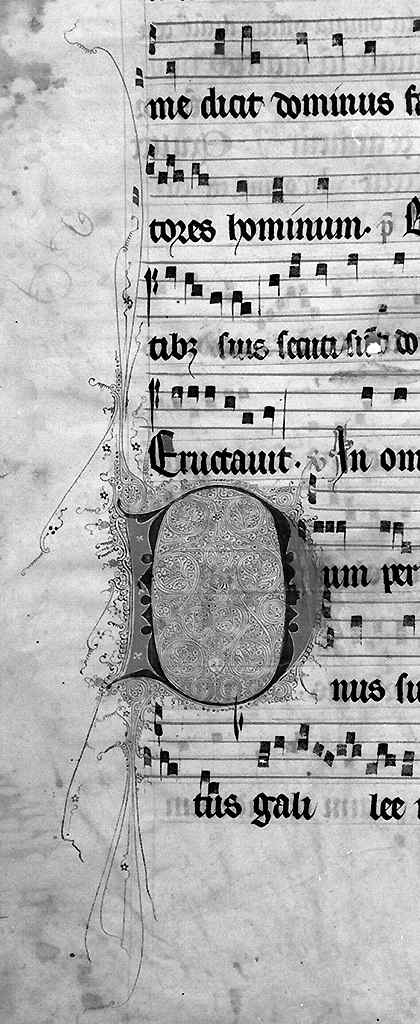 me dicit dominus fa
tores hominum. p̄
tibꝫ suis secuti sūt do
Eructauit. In om
Dum per
nus su
tus gali lee